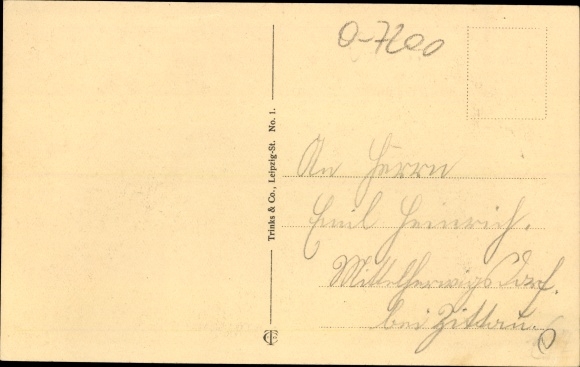 O-7200
Trinks & Co., Leipzig-St. No. 1.
An Herrn
Emil Heinrich.
Mittelherwigsdorf.
bei Zittau.